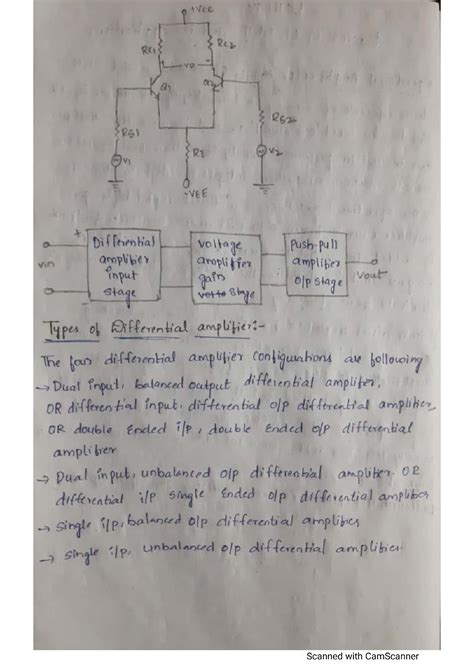 +VCC
RC1
RC2
VO
Q1
Q2
RS1
RS2
V1
RE
V2
-VEE
+
Vin
Differential
amplifier
input
stage
voltage
amplifier
gain
stage
Push-pull
amplifier
o/p stage
Vout
Types of Differential amplifier:-
The four differential amplifier configurations are following
→ Dual input, balanced output differential amplifier,
OR differential input, differential o/p differential amplifier,
OR double ended i/p, double ended o/p differential
amplifier
→ Dual input, unbalanced o/p differential amplifier OR
differential i/p single ended o/p, differential amplifier
→ single i/p, balanced o/p differential amplifier
→ single i/p, unbalanced o/p differential amplifier.
Scanned with CamScanner